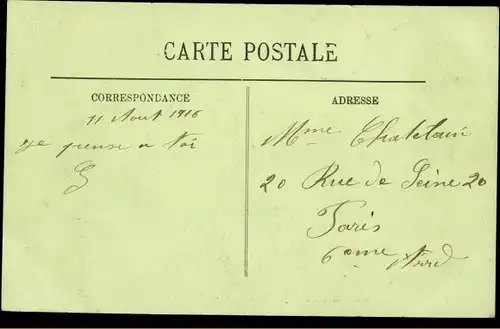 CARTE POSTALE
CORRESPONDANCE
11 Aout 1916
Je pense a toi
G
ADRESSE
Mme Chatelain
20 Rue de Seine 20
Paris
6eme Arrd